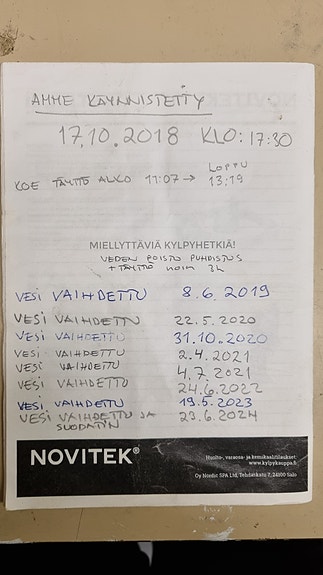 AMME KÄYNNISTETTY
17.10.2018 KLO: 17:30
LOPPU
KOE TÄYTTÖ ALKO 11:07 → 13:19
MIELLYTTÄVIÄ KYLPYHETKIÄ!
VEDEN POISTO PUHDISTUS
+ TÄYTTÖ NOIN 3h
VESI VAIHDETTU 8.6.2019
VESI VAIHDETTU 22.5.2020
VESI VAIHDETTU 31.10.2020
VESI VAIHDETTU 2.4.2021
VESI VAIHDETTU 4.7.2021
VESI VAIHDETTU 24.6.2022
VESI VAIHDETTU 19.5.2023
VESI VAIHDETTU JA 23.6.2024
SUODATIN
NOVITEK®
Huolto-, varaosa- ja kemikaalitilaukset:
www.kylpykauppa.fi
Oy Nordic SPA Ltd, Tehdaskatu 7, 24100 Salo